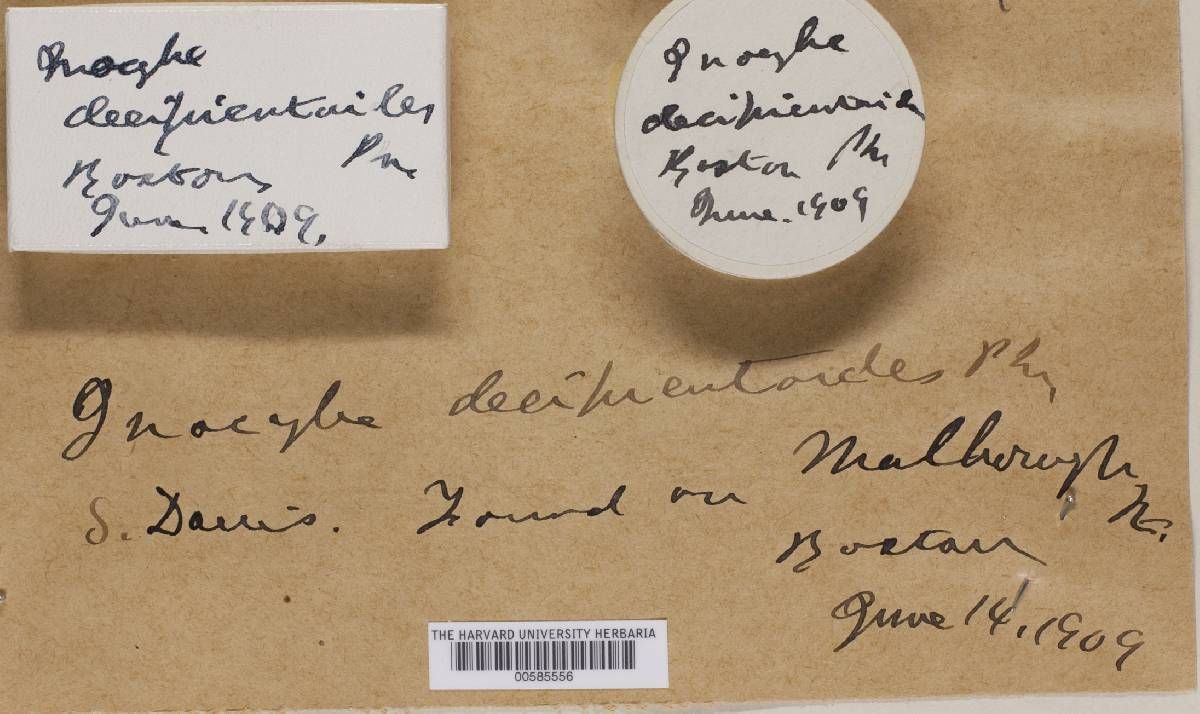 Inocybe
decipientoides
Boston Pk
June 1909.
Inocybe
decipientoides
Boston Pk
June. 1909
Inocybe decipientoides Pk
S. Davis. Found on Malborough St.
Boston
June 14, 1909
THE HARVARD UNIVERSITY HERBARIA
00585556